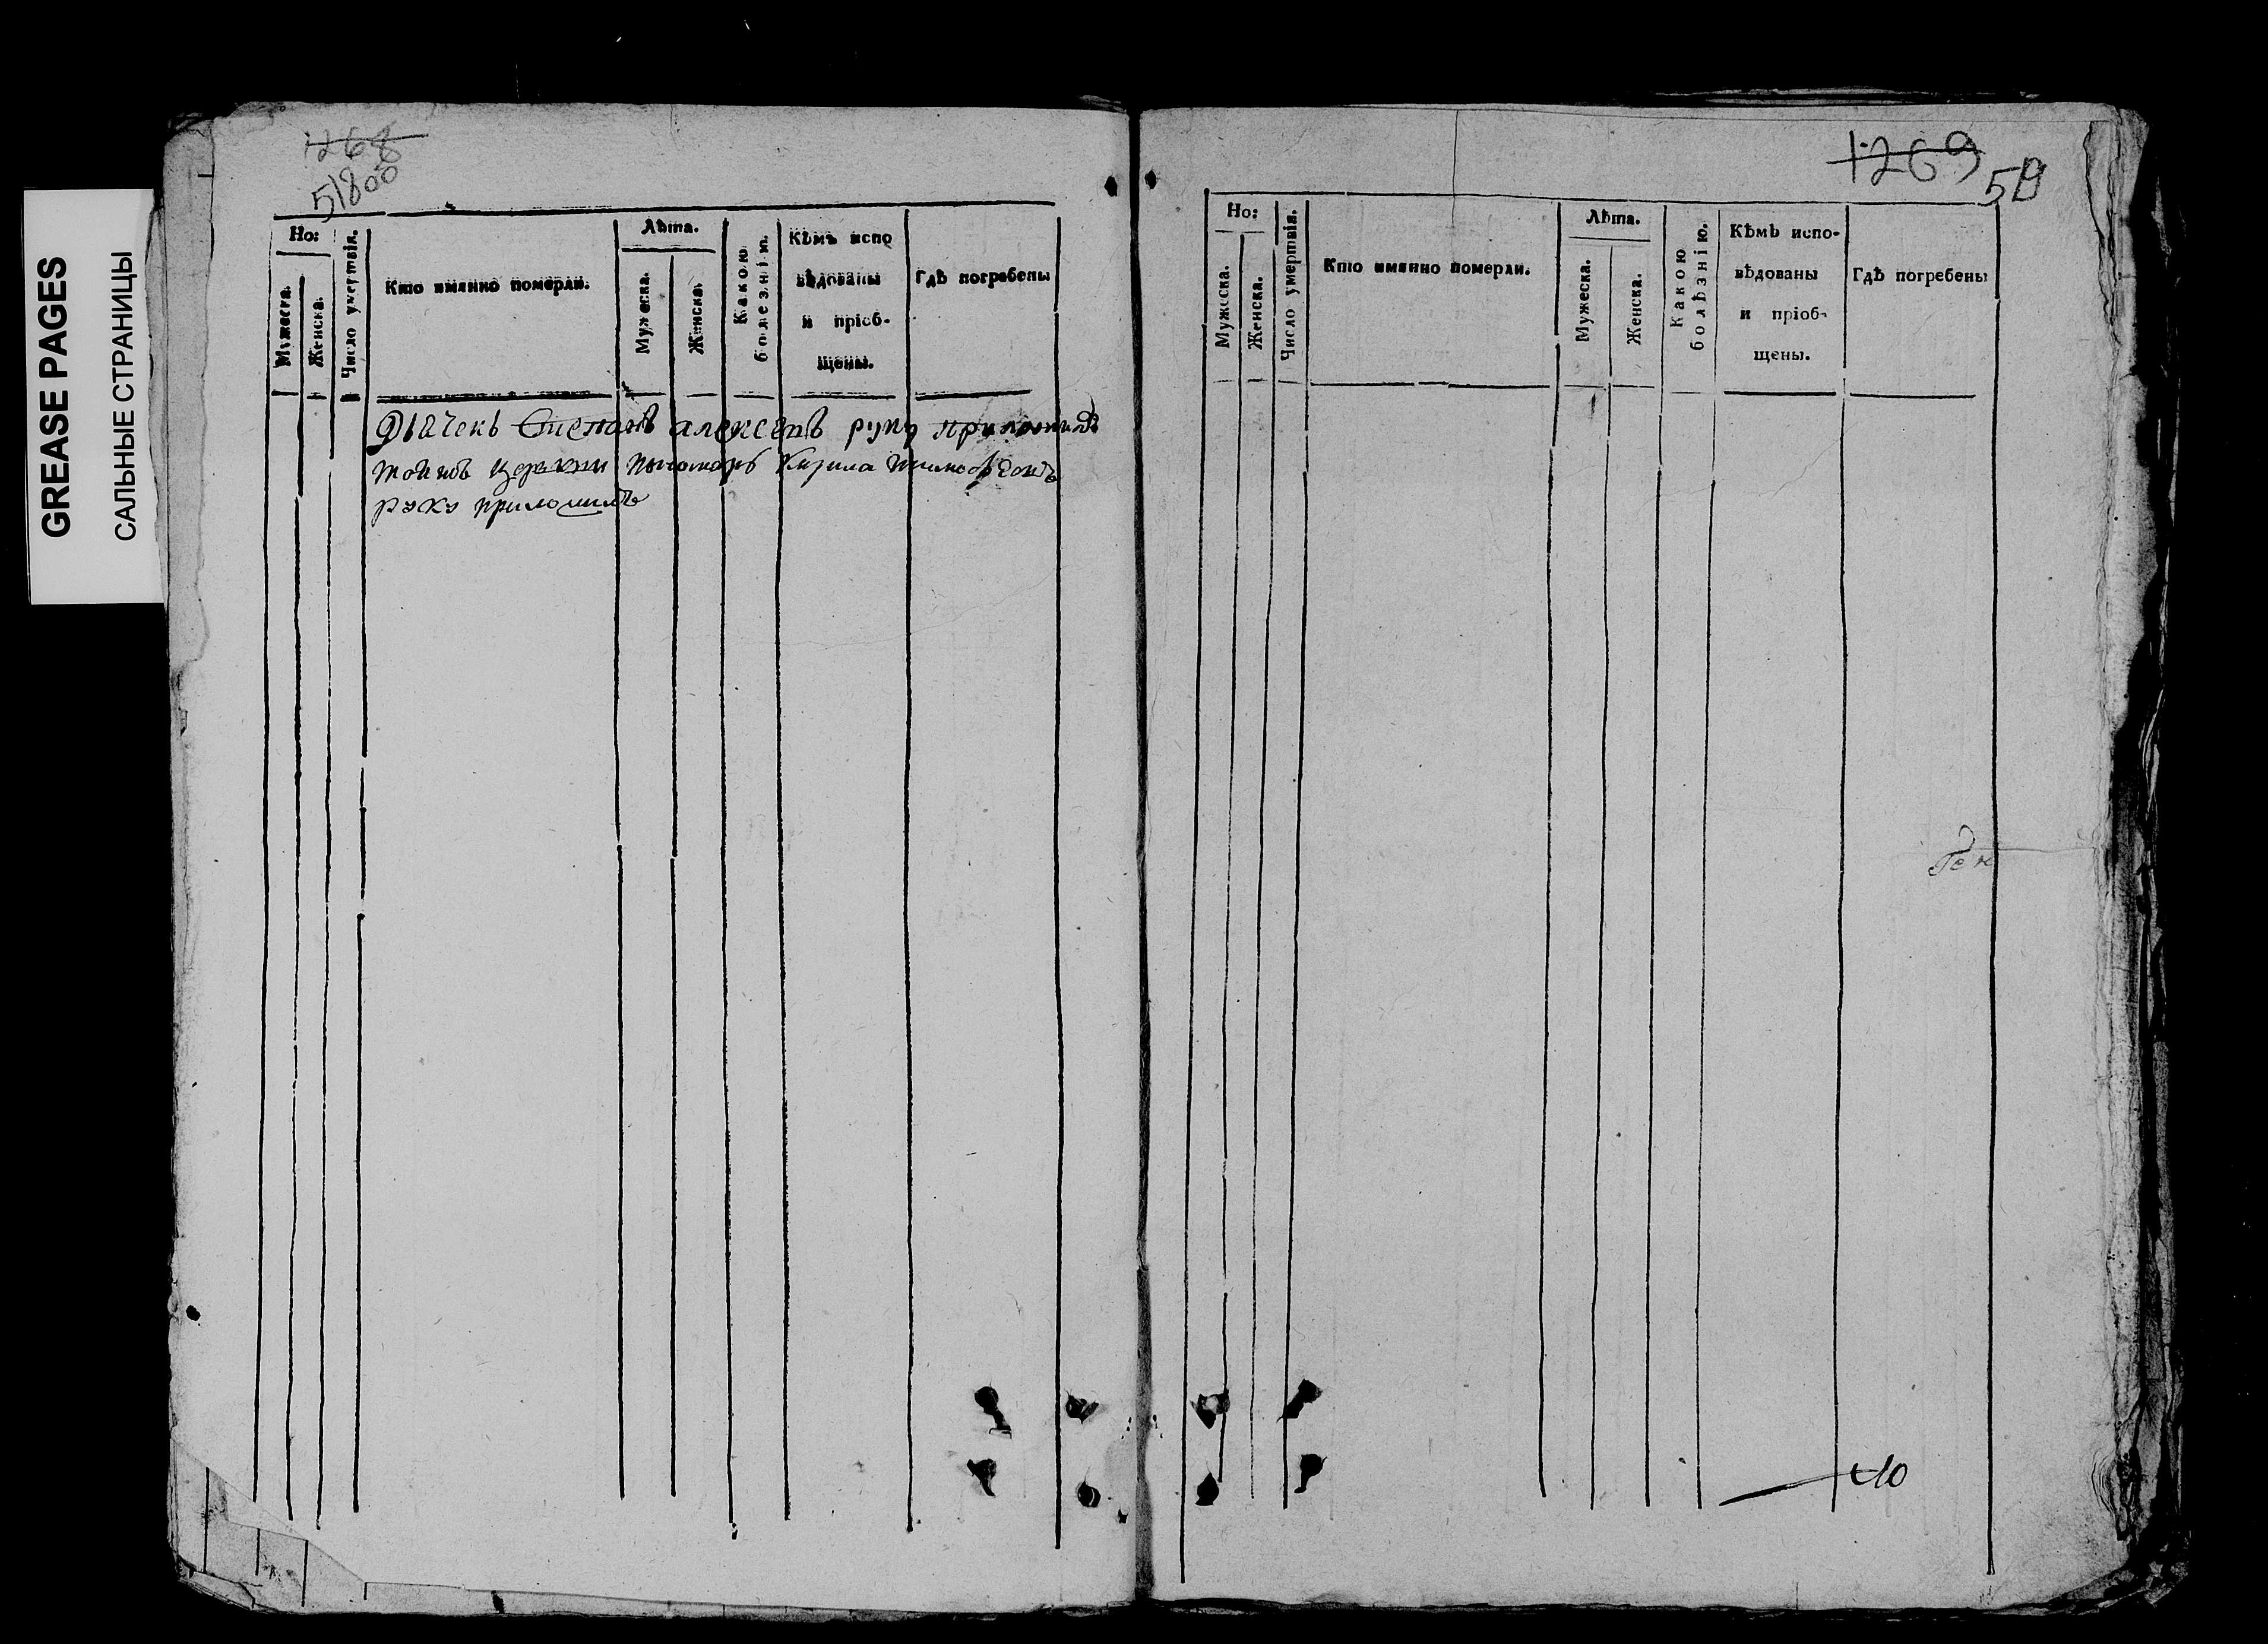 GREASE PAGES
САЛЬНЫЕ СТРАНИЦЫ
1268
51800
Но:
Мужеска.
Женска.
Число умертвія.
Кто имянно померли.
Лѣта.
Мужеска.
Женска.
Какою
болезнію.
Кѣмъ испо
вѣдованы
и пріоб-
щены.
Гдѣ погребены
Дьячекъ Степанъ алексеевъ руку приложилъ
тойжъ церкви пономарь Кирила
руку приложилъ
1269
Но:
Мужеска.
Женска.
Число умертвія.
Кто имянно померли.
Лѣта.
Мужеска.
Женска.
Какою
болѣзнію.
Кѣмъ испо-
вѣдованы
и пріоб-
щены.
Гдѣ погребены